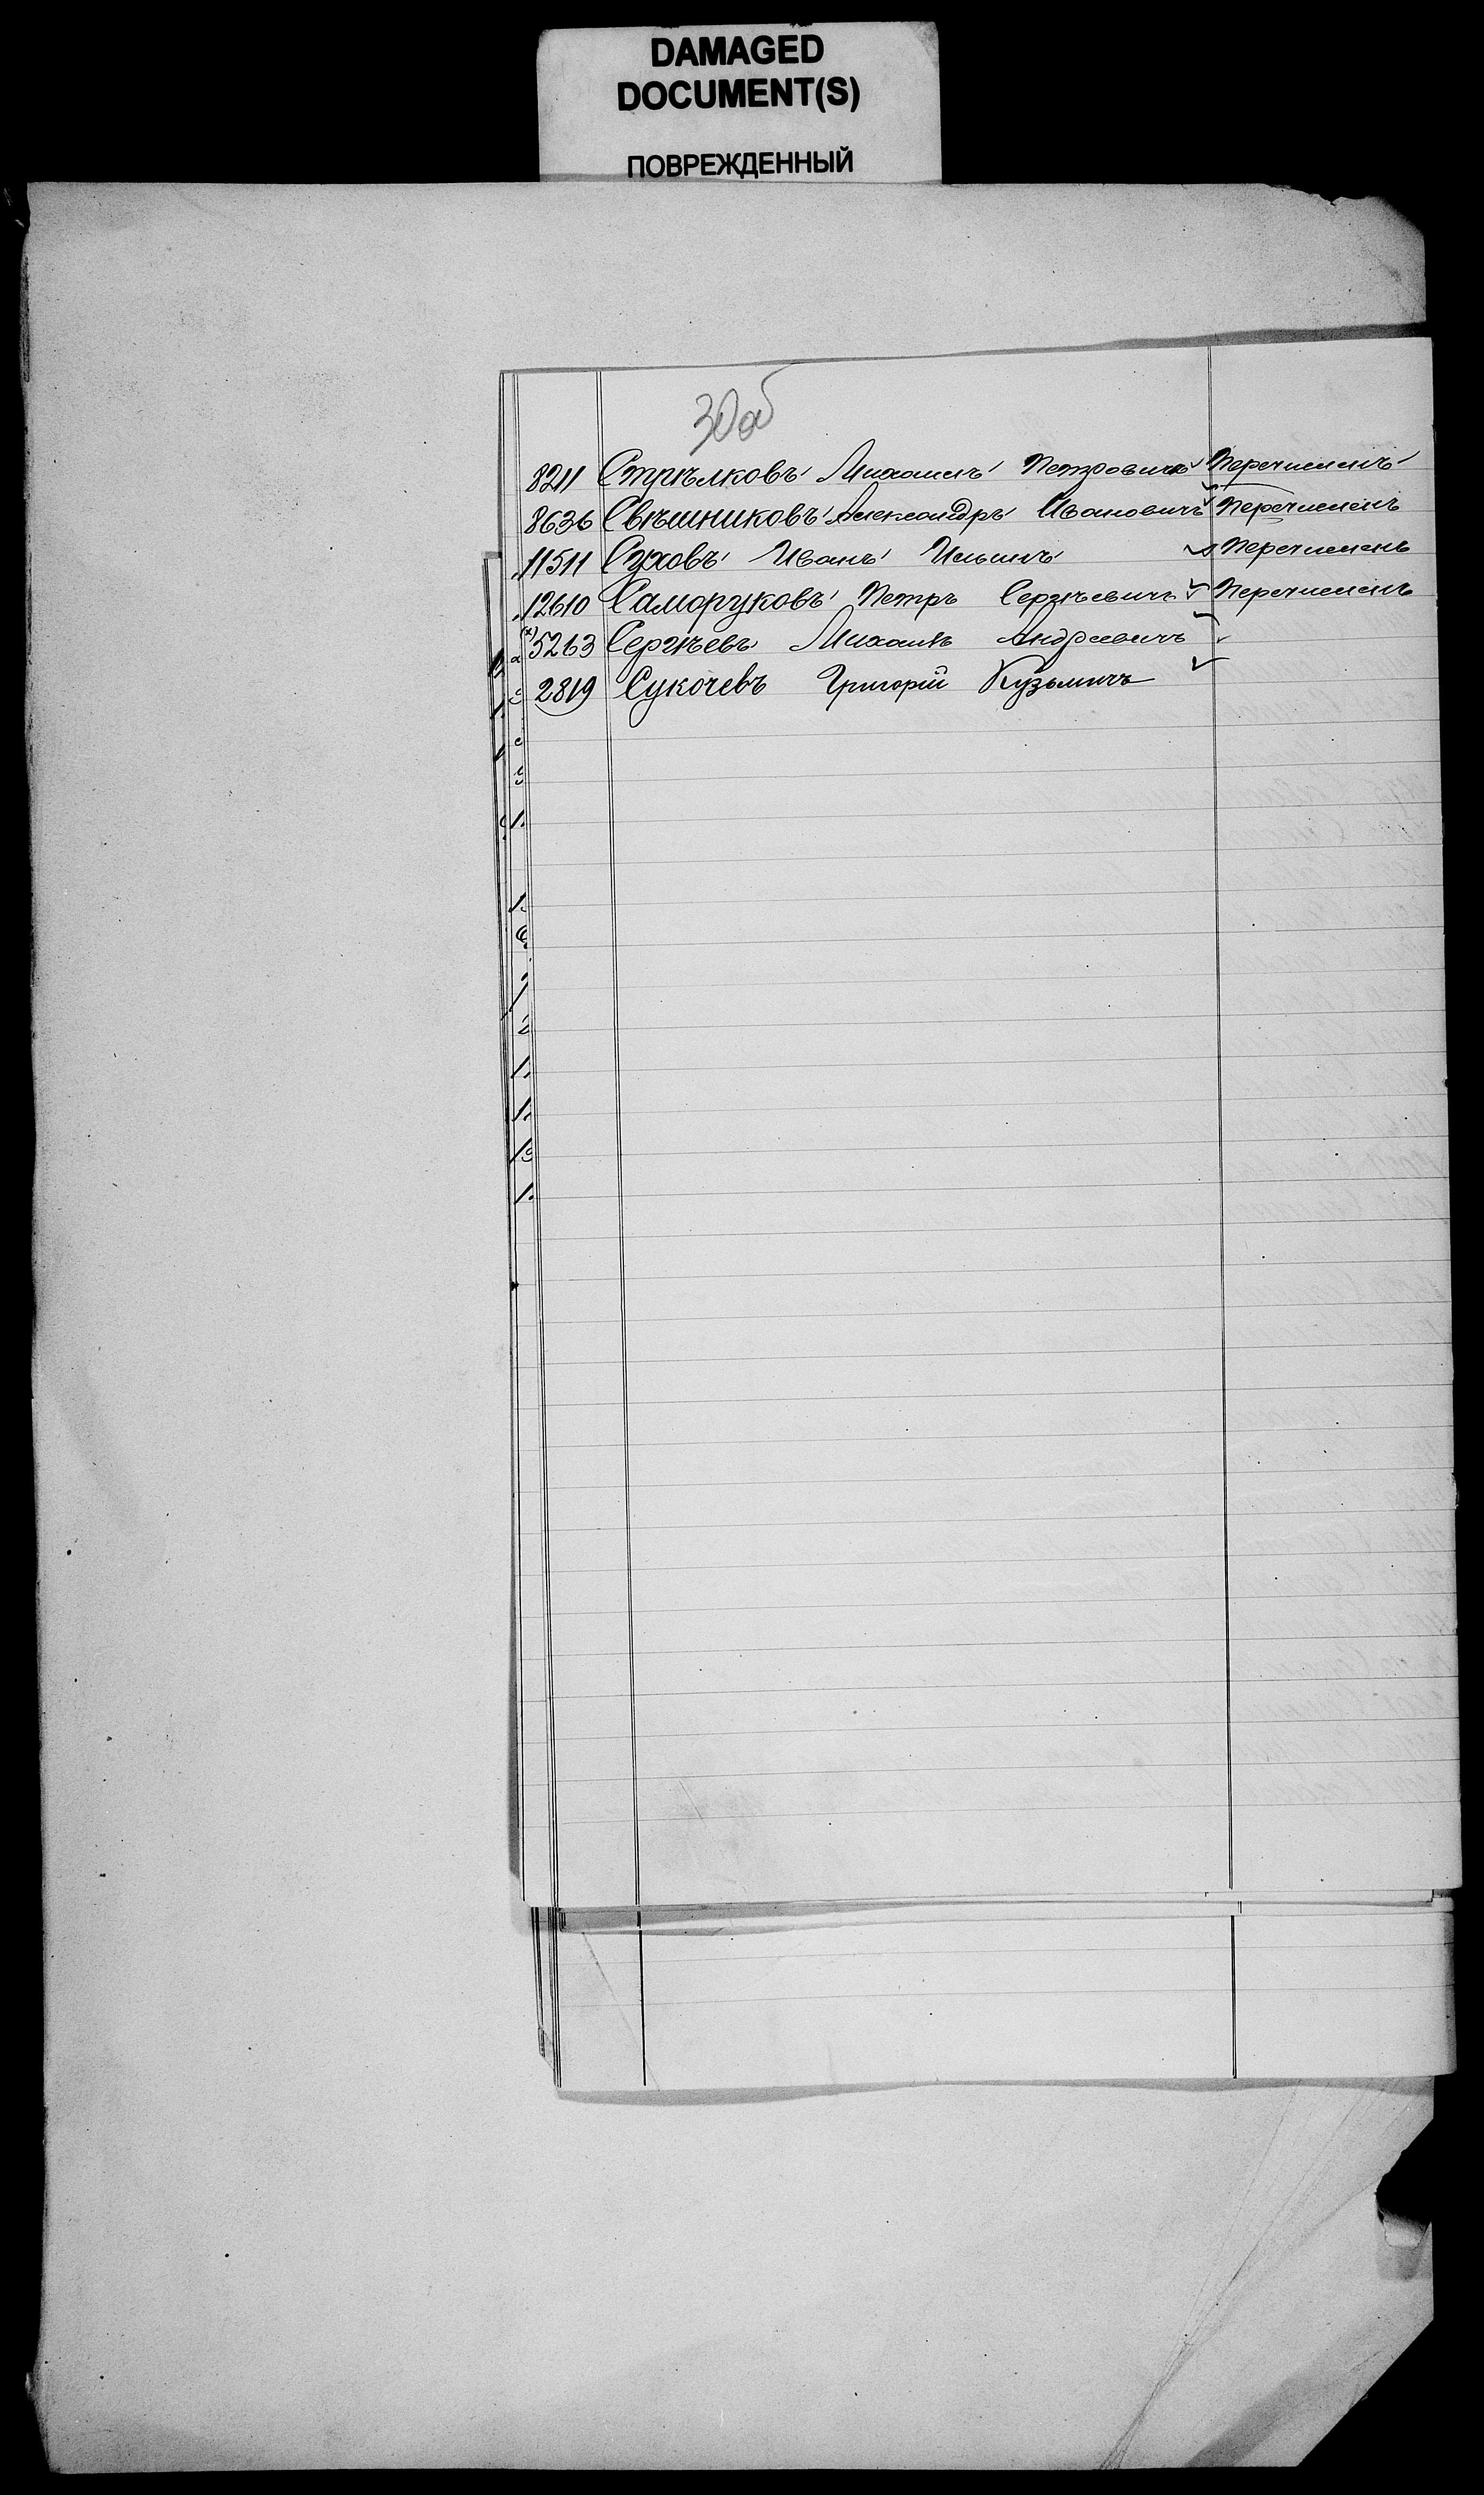 DAMAGED
DOCUMENT(S)
ПОВРЕЖДЕННЫЙ
30об
8211 Стрѣлковъ Михаилъ Петровичъ Перечисленъ
8636 Свѣшниковъ Александръ Ивановичъ Перечисленъ
11511 Суховъ Иванъ Ильичъ Перечисленъ
12610 Саморуковъ Петръ Сергѣевичъ Перечисленъ
(x) 5263 Сергѣевъ Михаилъ Андреевичъ
2819 Сукочевъ Григорій Кузьмичъ